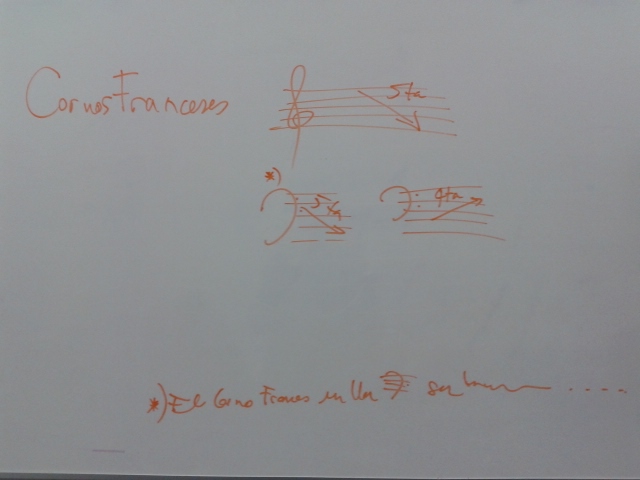 Cornos Franceses
5ta
*)
5ta
4ta
*) El Corno Frances en